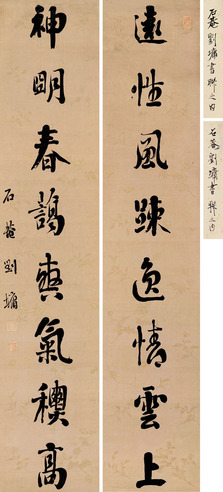 石菴劉墉書聯之
石菴劉墉書聯之
遠性風疎逸情雲上
神明春藹爽氣龝高
石菴劉墉